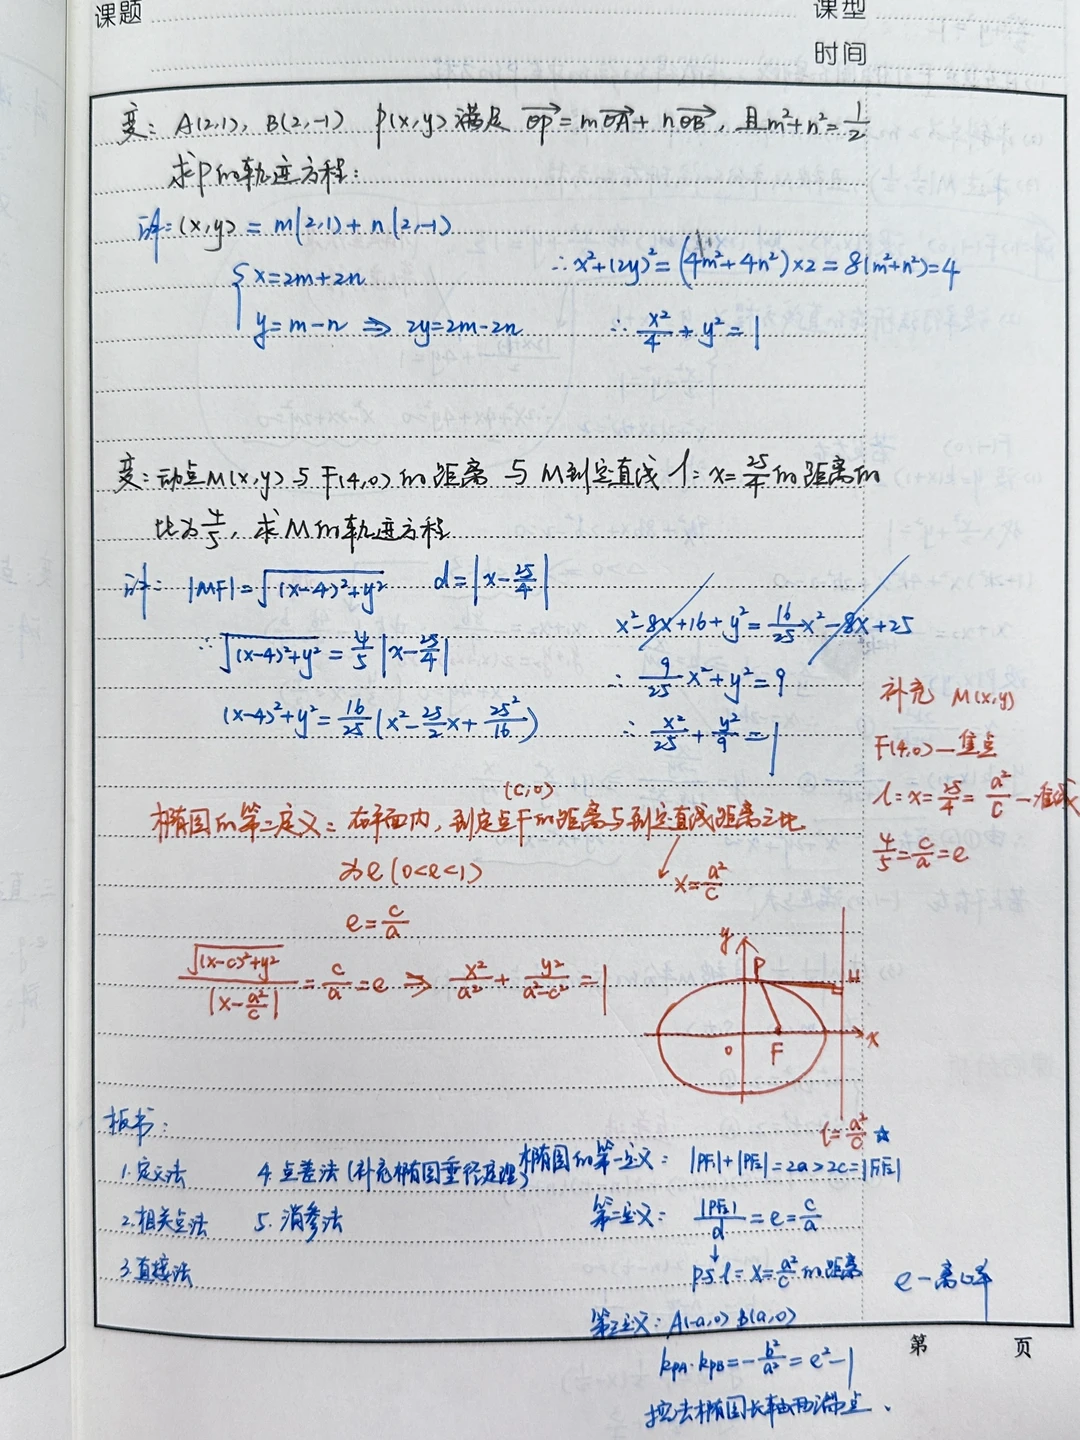 课题
课型
时间
变：A(2,1), B(2,-1) P(x,y)满足 $\overrightarrow{OP}=m\overrightarrow{OA}+n\overrightarrow{OB}$, 且m²+n²=1/2
求P的轨迹方程：
讲：(x,y) = m(2,1) + n(2,-1)
{ x=2m+2n
y=m-n ⇒ 2y=2m-2n
∴ x²+(2y)²=(4m²+4n²)×2=8(m²+n²)=4
∴ x²/4 + y² = 1
变：动点M(x,y)与F(4,0)的距离与M到定直线 l：x=25/4的距离的
比为4/5, 求M的轨迹方程
讲： |MF|=√((x-4)²+y²) d=|x-25/4|
∴ √((x-4)²+y²) = 4/5 |x-25/4|
(x-4)²+y²=16/25(x²-25/2x+25²/16)
x²-8x+16+y²=16/25x²-8x+25
∴ 9/25x²+y²=9
∴ x²/25+y²/9=1
补充 M(x,y)
F(4,0)—焦点
l：x=25/4=a²/c—准线
4/5=c/a=e
(c,0)
椭圆的第二定义：在平面内，到定点F的距离与到定直线距离之比
为e(0<e<1)
x=a²/c
e=c/a
√((x-c)²+y²)/|x-a²/c| = c/a = e ⇒ x²/a² + y²/(a²-c²) = 1
y
P
H
O
F
x
l=a²/c ☆
板书：
1.定义法
4.点差法(补充椭圆垂径定理)
2.相关点法
5.消参法
3.直接法
椭圆的第一定义： |PF₁|+|PF₂|=2a>2c=|F₁F₂|
第二定义： |PF₂|/d=e=c/a
↓
P到l：x=a²/c的距离
e—离心率
第三定义：A(-a,0) B(a,0)
k_PA·k_PB=-b²/a²=e²-1
椭圆长轴两端点.
第 页